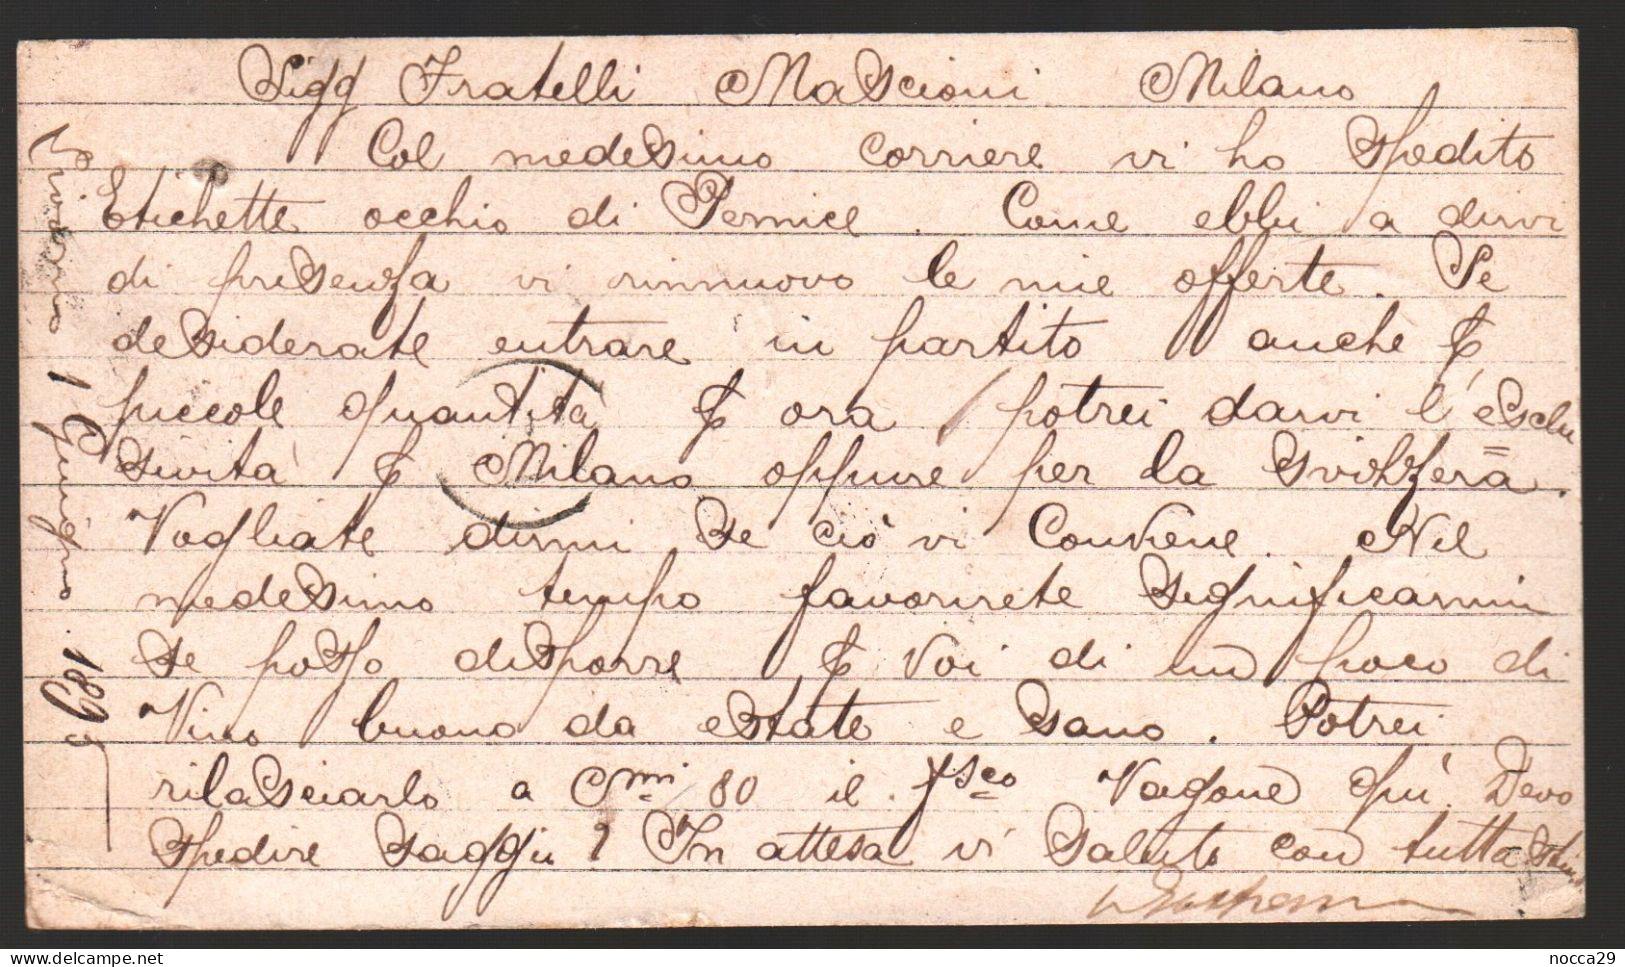 Sigg Fratelli Mascioni Milano
Col medesimo corriere vi ho spedito
Etichette occhio di Pernice. Come ebbi a dirvi
di presenza vi rinnuovo le mie offerte. Se
desiderate entrare in partito anche p
piccole quantità p ora potrei darvi l'esclu
sività p Milano oppure per la Svizzera.
Vogliate dirmi se ciò vi conviene. Nel
medesimo tempo favorirete significarmi
se posso disporre p Voi di un poco di
Vino buono da estate e sano. Potrei
rilasciarlo a Cmi 80 il fsco Vagone qui. Devo
spedire saggii? In attesa vi saluto con tutta stim
1 Giugno 1895
nocca29